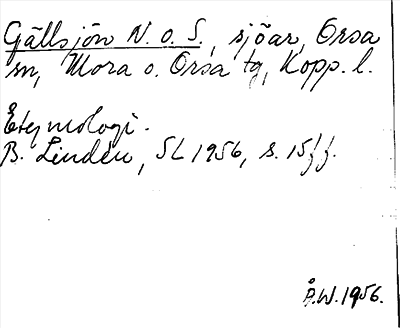 Gällsjön N. o. S., sjöar, Orsa
sn, Mora o. Orsa tg, Kopp. l.
Etymologi.
B. Lindén, SL 1956, s. 15ff.
Å.W. 1956.